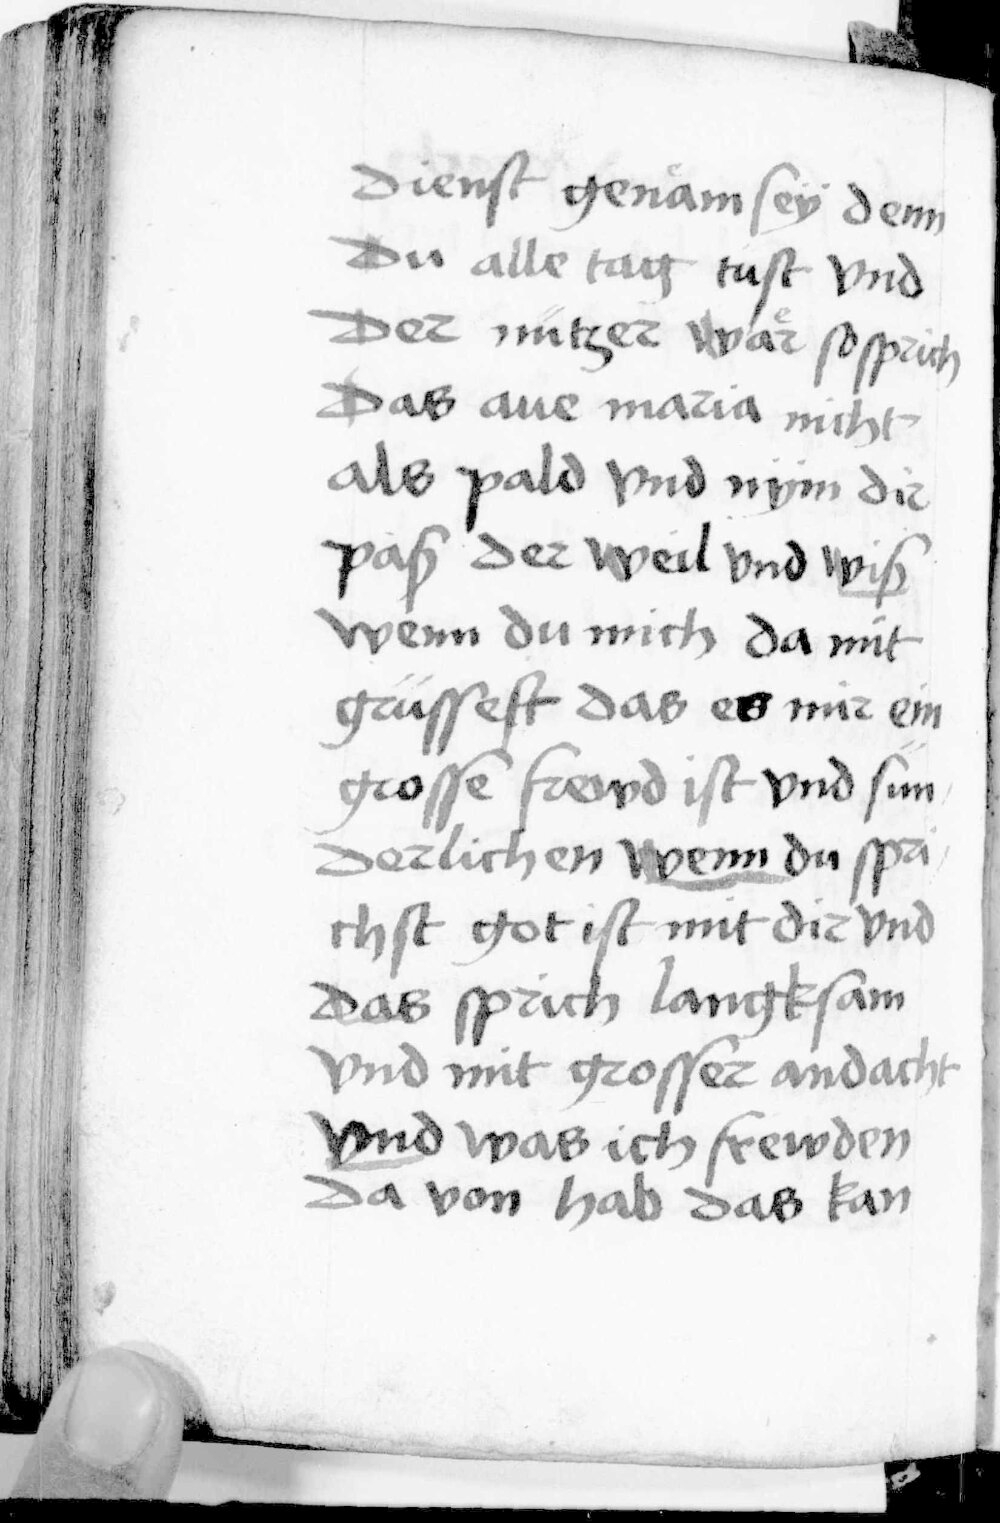 dienst genäm seÿ denn
Du alle tag tust vnd
Der nützer wär so sprich
Das aue maria nicht
als pald vnd nÿm dir
paß der weil vnd wiß
wenn du mich da mit
grüssest das es mir ein
grosse frewd ist vnd sün
derlichen wenn du spri
chst got ist mit dir vnd
das sprich langksam
vnd mit grosser andacht
vnd was ich frewden
da von hab das kan